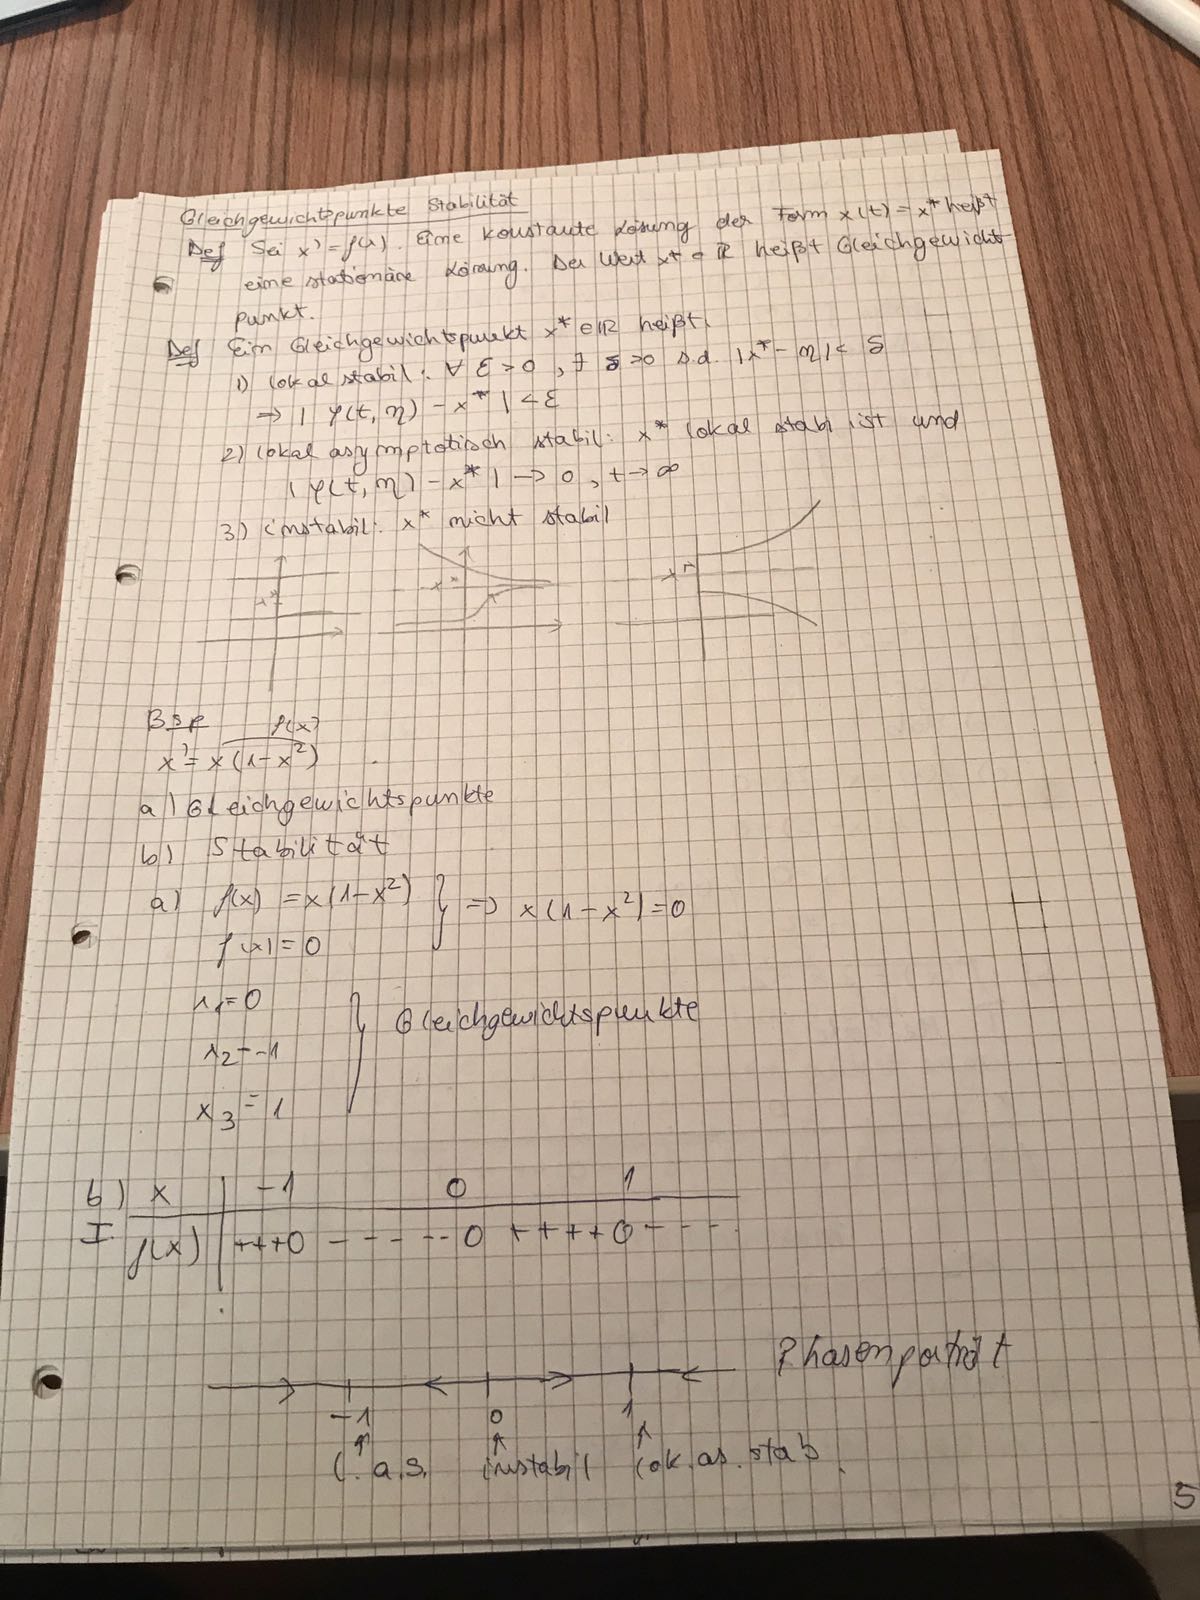 Gleichgewichtspunkte Stabilität
Def Sei x' = f(x). Eine konstante Lösung der Form x(t) = x* heißt
eine stationäre Lösung. Der Wert x* ∈ ℝ heißt Gleichgewicht-
punkt.
Def Ein Gleichgewichtspunkt x* ∈ ℝ heißt:
1) lokal stabil: ∀ ε > 0, ∃ δ > 0 s.d. |x* - η| < δ
⇒ | φ(t, η) - x* | < ε
2) lokal asymptotisch stabil: x* lokal stabi ist und
| φ(t, η) - x* | → 0, t → ∞
3) instabil: x* nicht stabil
x* x* x*
Bsp f(x)
x' = x(1-x²)
a) Gleichgewichtspunkte
b) Stabilität
a) f(x) = x(1-x²) } ⇒ x(1-x²) = 0
f(x) = 0
x₁ = 0
x₂ = -1 } Gleichgewichtspunkte
x₃ = 1
b) x | -1 0 1
I f(x) | +++0 - - - - -- 0 + + + + 0 - - -
Phasenporträt
-1 0 1
l. a.s. instabil lok. as. stab.
5